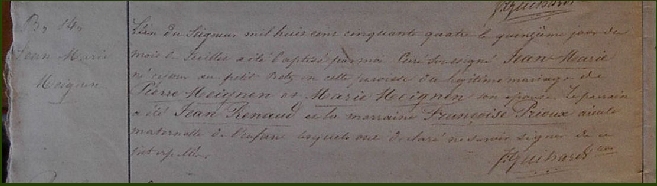 B, 14,
Jean Marie
Meignen
L'an du Seigneur mil huit cent cinquante quatre le quinzième jour de
mois de Juillet a été baptisé par moi Curé soussigné Jean Marie
né ce jour au petit en cette paroisse du légitime mariage de
Pierre Meignen et Marie Meignen son épouse. Le parrain
a été Jean Renaud et la marraine Françoise Prioux aieule
maternelle de l'enfant lesquels ont déclaré ne savoir signer de ce
interpellés.